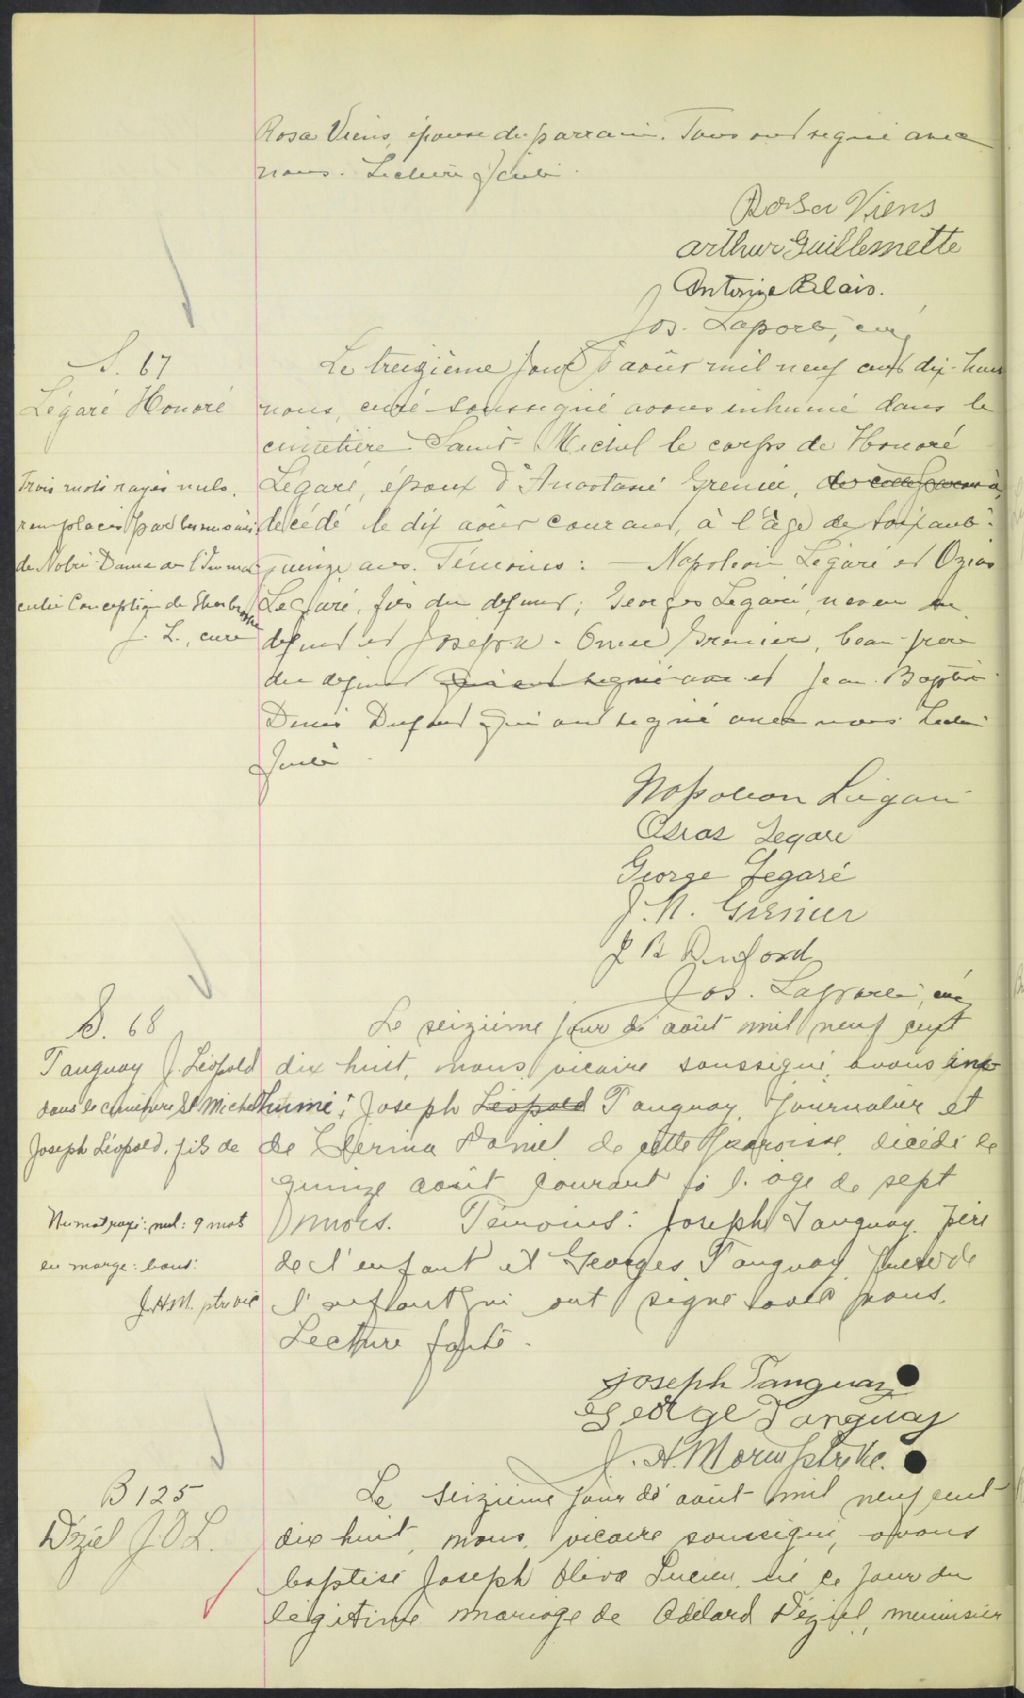 Rosa Viens, épouse du parrain. Tous ont signé avec
nous. Lecture faite.
Rosa Viens
Arthur Guillemette
Antoine Blais.
Jos. Laporte, curé
S. 67
Légaré Honoré
Le treizième jour d'août mil neuf cent dix-huit
nous, curé soussigné avons inhumé dans le
cimetière Saint-Michel le corps de Honoré
Légaré, époux d'Anastasie Grenier, de cette paroisse
décédé le dix août courant, à l'âge de soixante-
quinze ans. Témoins: — Napoléon Légaré et Ozias
Légaré, fils du défunt; Georges Légaré, neveu du
défunt et Joseph-Grenier, beau-frère
du défunt qui ont signé avec et Jean-Baptiste
Denis Dufort qui ont signé avec nous. Lecture
faite.
Trois mots rayés nuls,
remplacés par les mots:
de Notre-Dame de l'Imma-
culée Conception de Sherbrooke
J. L., curé
Napoleon Légaré
Osias Legaré
George Legaré
J. N. Grenier
J B Duford
Jos. Laporte, curé
S. 68
Tanguay J. Léopold
dans le cimetière St Michel
Joseph Léopold, fils de
Un mot rayé: nul: 9 mots
en marge: bons:
J.H.M. ptre vic
Le seizième jour d'août mil neuf cent
dix huit, nous, vicaire soussigné, avons inhu-
humé: Joseph Léopold Tanguay, journalier et
de Daniel de cette paroisse, décédé le
quinze août courant à l'âge de sept
mois. Témoins: Joseph Tanguay, père
de l'enfant et Georges Tanguay de
l'enfant qui ont signé avec nous.
Lecture faite.
Joseph Tanguay
George Tanguay
J. H. Morin ptre vic.
B 125
Déziel J. O L.
Le seizième jour d'août mil neuf cent
dix huit, nous, vicaire soussigné, avons
baptisé Joseph Oliva Lucien, né ce jour du
légitime mariage de Adélard Déziel, menuisier